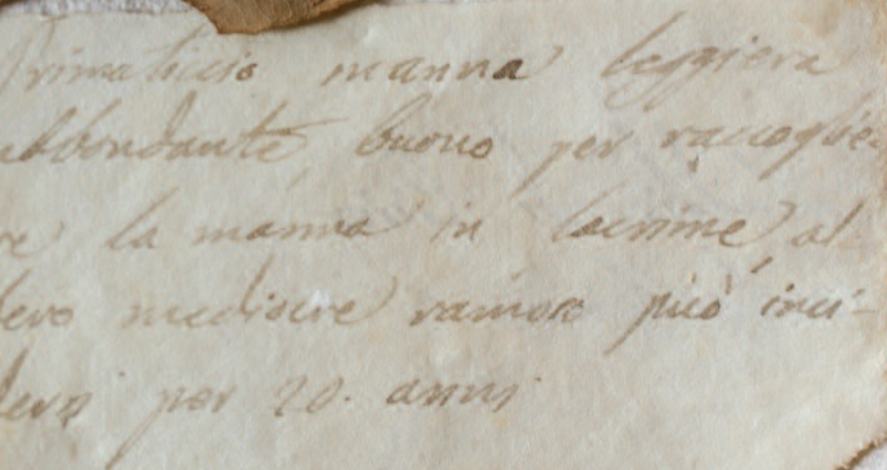 Primaticcio manna leggiera
abbondante, buono per raccoglie-
re la manna in lacrime, al-
bero mediocre ramoso può inci-
dersi per 20. anni